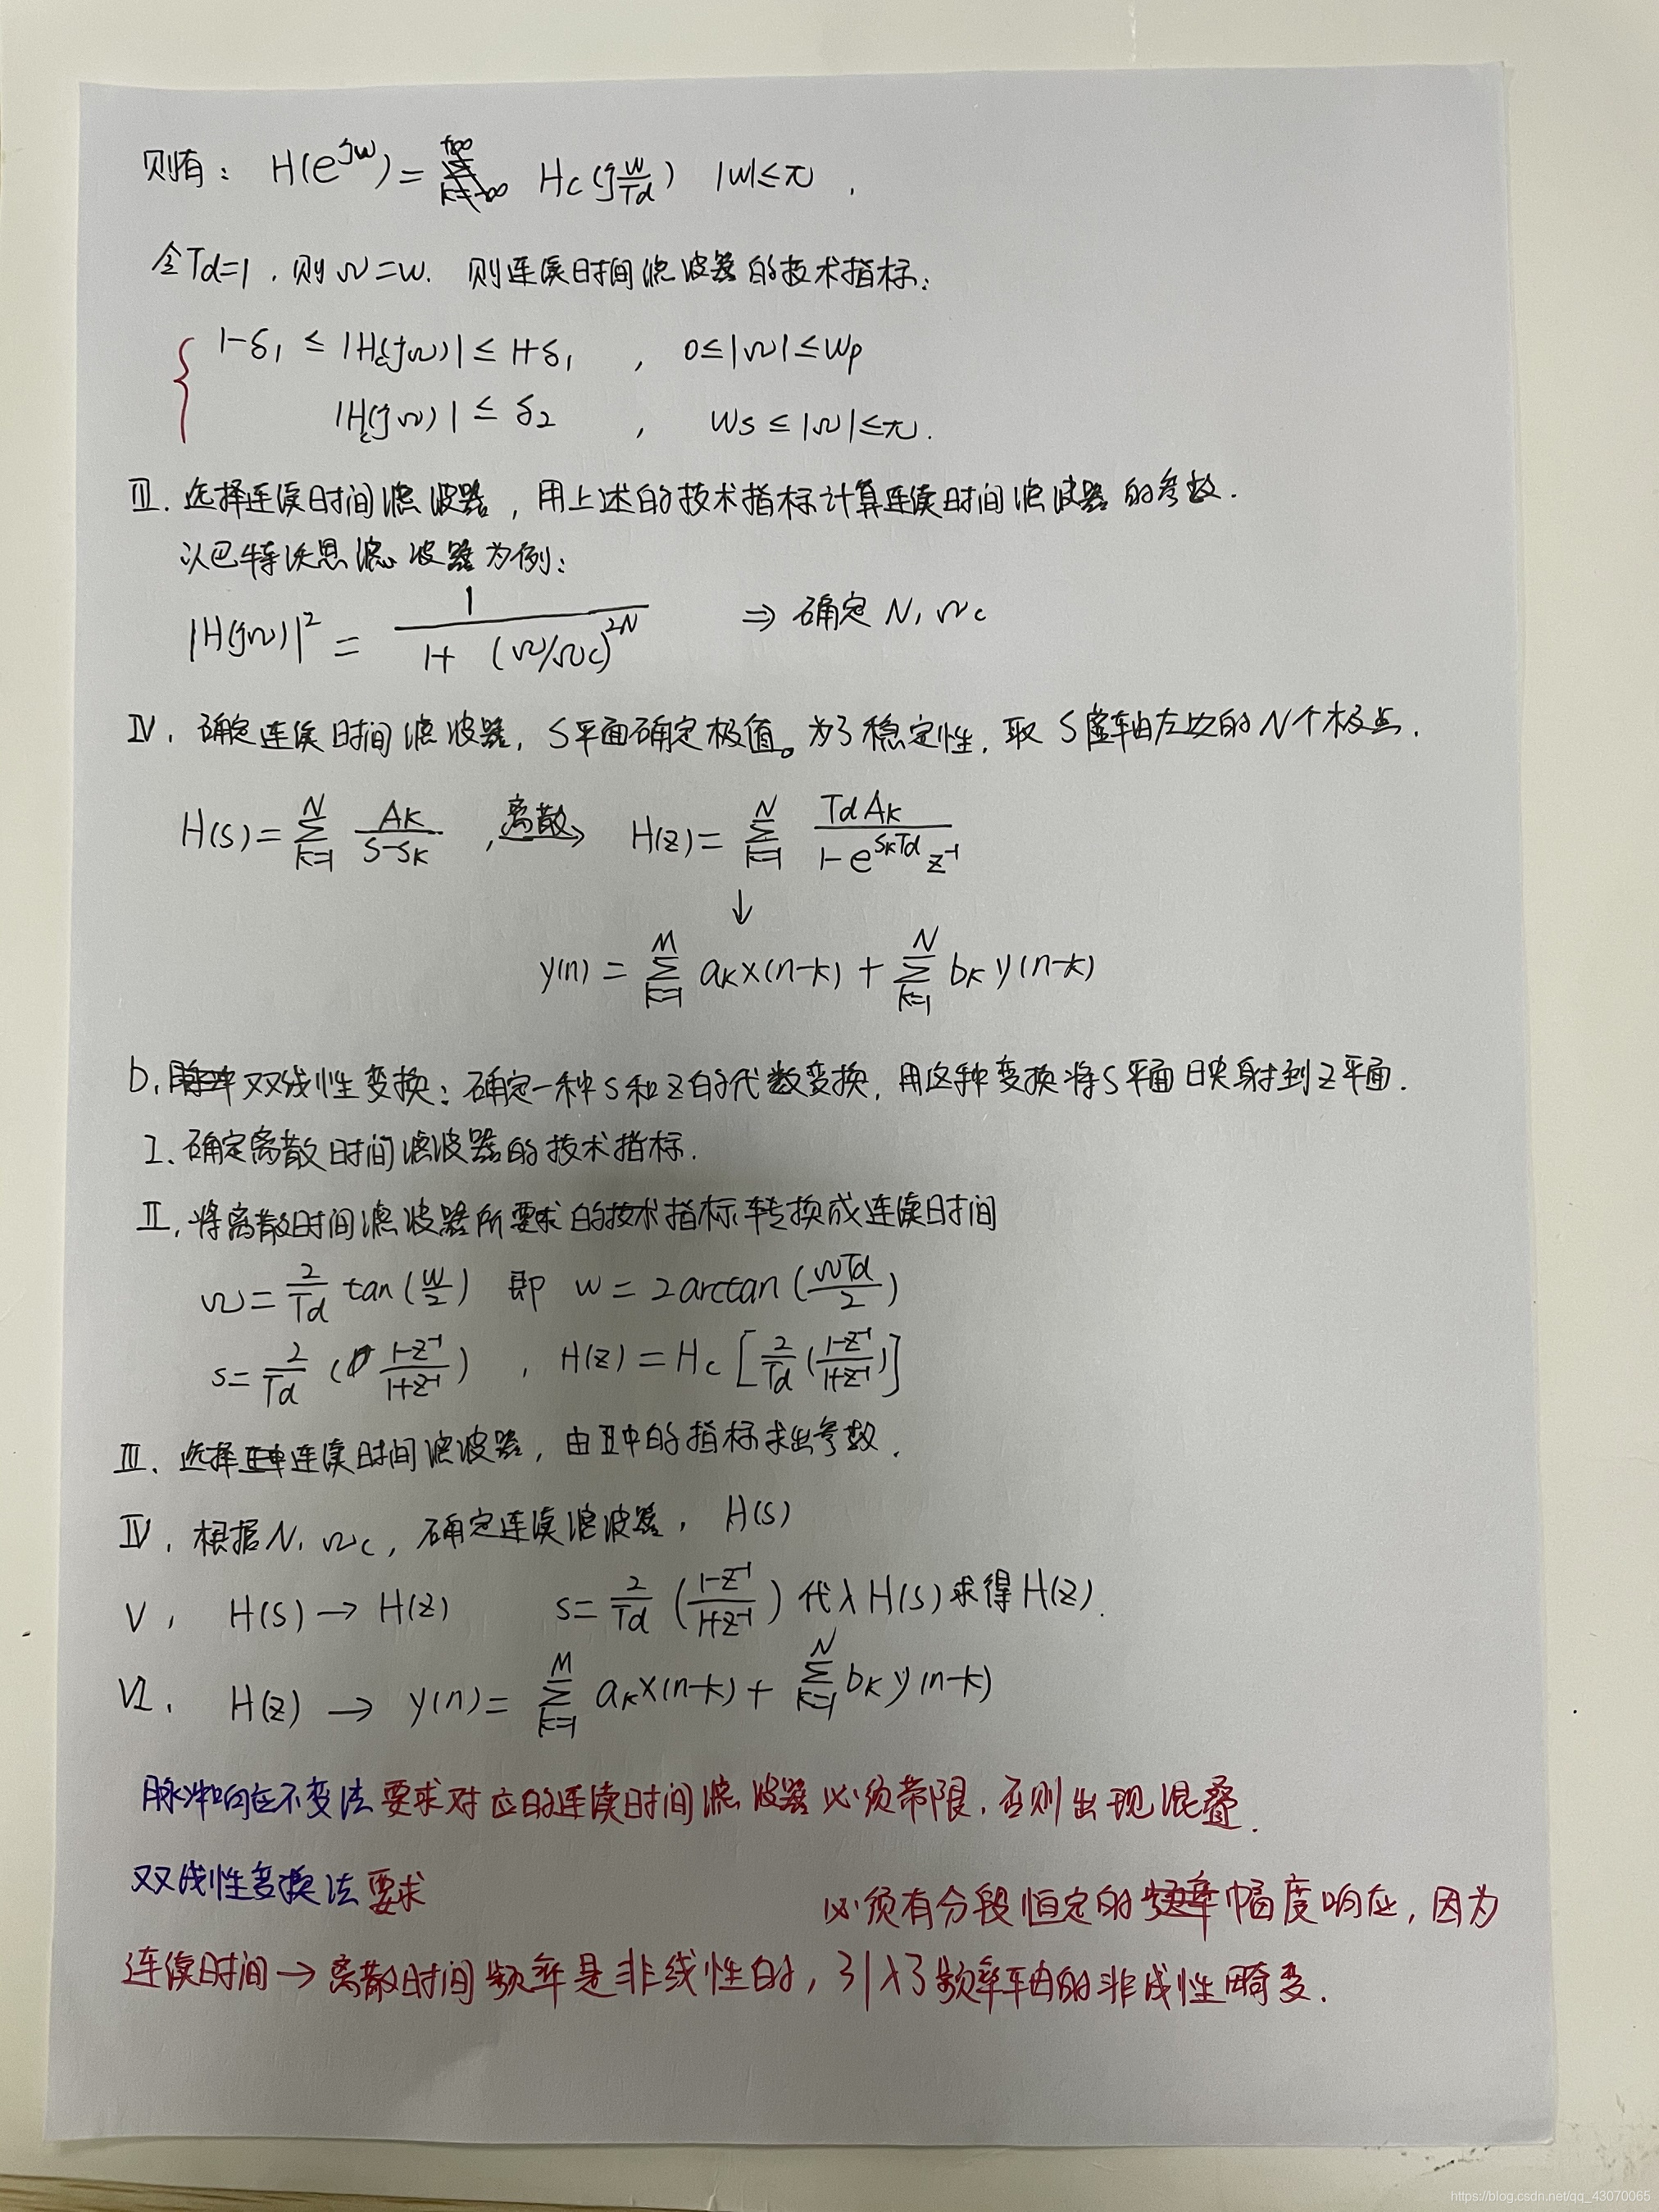 则有： H(e^{jw}) = Hc(j w/Td) |w|≤π ,
令Td=1 . 则Ω=w. 则连续时间滤波器的技术指标:
1-δ₁ ≤ |Hc(jΩ)| ≤ 1+δ₁ , 0≤|Ω|≤wp
|Hc(jΩ)| ≤ δ₂ , ws≤|Ω|≤π.
Ⅲ. 选择连续时间滤波器，用上述的技术指标计算连续时间滤波器的参数.
以巴特沃思滤波器为例:
|H(jΩ)|² = 1/(1+(Ω/Ωc)^{2N}) ⇒ 确定 N, Ωc
Ⅳ. 确定连续时间滤波器, S平面确定极值。为了稳定性, 取S虚轴左边的N个极点.
H(s) = ∑_{k=1}^{N} Ak/(s-sk) , 离散→ H(z) = ∑_{k=1}^{N} TdAk/(1-e^{skTd}z⁻¹)
↓
y(n) = ∑_{k=1}^{M} akx(n-k) + ∑_{k=1}^{N} bky(n-k)
b. 双线性变换: 确定一种s和z的代数变换, 用这种变换将S平面映射到Z平面.
I. 确定离散时间滤波器的技术指标.
Ⅱ, 将离散时间滤波器所要求的技术指标转换成连续时间
Ω = 2/Td tan(w/2) 即 w = 2arctan(ΩTd/2)
s = 2/Td ((1-z⁻¹)/(1+z⁻¹)) , H(z) = Hc[2/Td((1-z⁻¹)/(1+z⁻¹))]
Ⅲ. 选择连续时间滤波器, 由Ⅱ中的指标求出参数.
Ⅳ. 根据N, Ωc, 确定连续滤波器, H(s)
Ⅴ, H(s) → H(z) s = 2/Td((1-z⁻¹)/(1+z⁻¹)) 代入H(s)求得H(z).
Ⅵ. H(z) → y(n) = ∑_{k=1}^{M} akx(n-k) + ∑_{k=1}^{N} bky(n-k)
脉冲响应不变法要求对应的连续时间滤波器必须带限, 否则出现混叠.
双线性变换法要求 必须有分段恒定的幅度响应, 因为
连续时间→离散时间频率是非线性的, 引入了频率轴的非线性畸变.
https://blog.csdn.net/qq_43070065